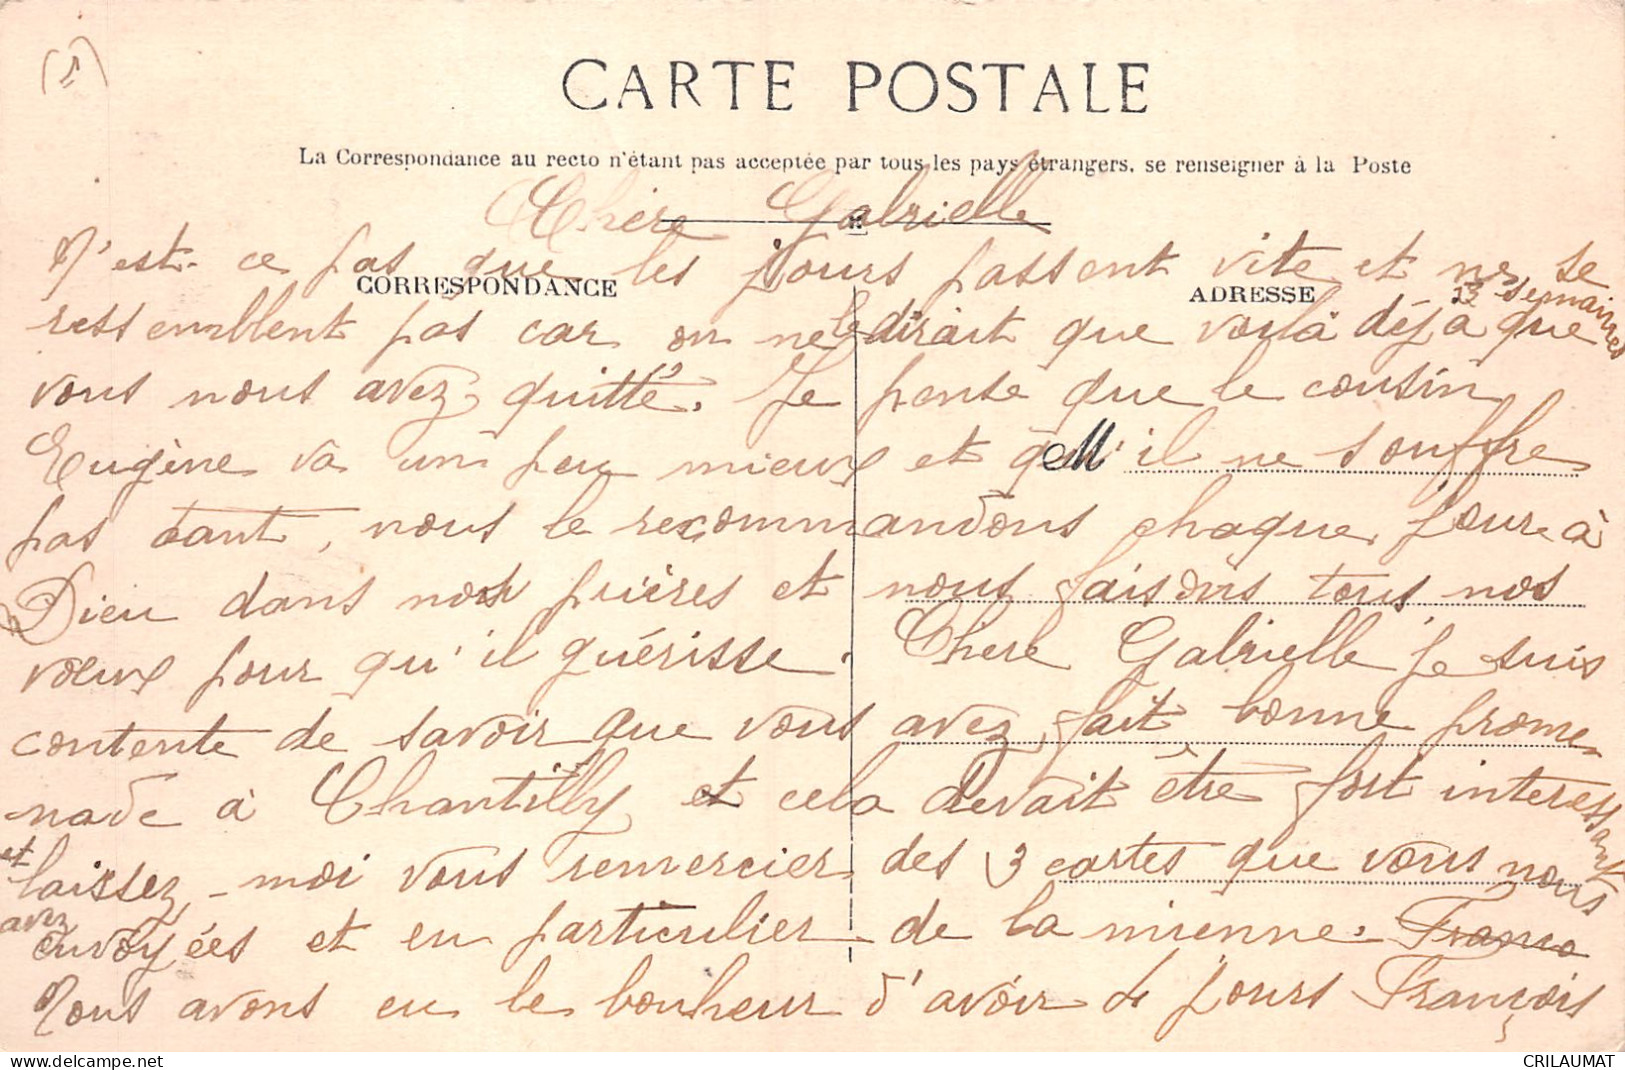 (1)
CARTE POSTALE
La Correspondance au recto n'étant pas acceptée par tous les pays étrangers, se renseigner à la Poste
Chère Gabrielle
N'est-ce pas que les jours passent vite et ne se
CORRESPONDANCE
ADRESSE
ressemblent pas car on ne le dirait que voilà déjà 3 semaines que
vous nous avez quitté. Je pense que le cousin
Eugène va un peu mieux et qu'il ne souffre
M
pas tant, nous le recommandons chaque jour à
Dieu dans nos prières et nous faisons tous nos
vœux pour qu'il guérisse. Chère Gabrielle je suis
contente de savoir que vous avez fait bonne prome-
nade à Chantilly et cela devait être fort interessant
et laissez-moi vous remercier des 3 cartes que vous nous
avez envoyées et en particulier de la mienne. Franco
Nous avons eu le bonheur d'avoir 4 jours François
delcampe.net
CRILAUMAT